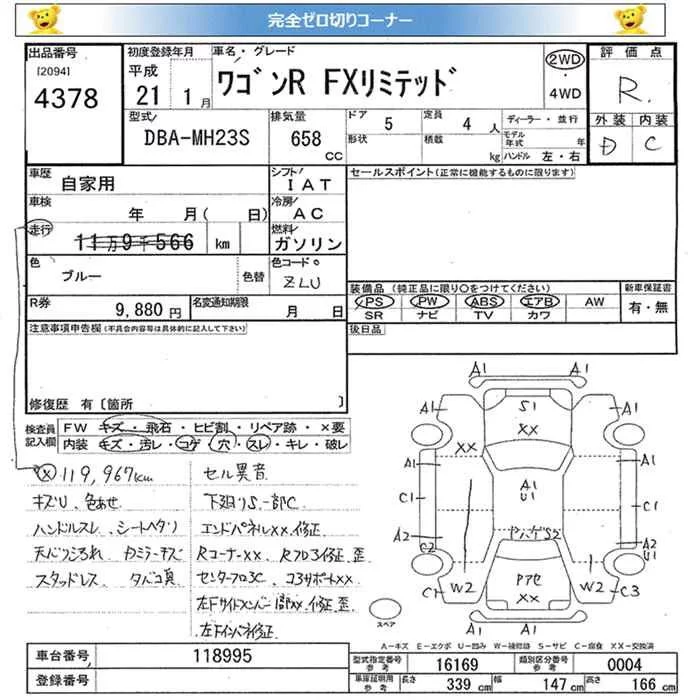 完全ゼロ切りコーナー
出品番号
[2094]
4378
初度登録年月
平成
21年 1月
車名・グレード
ワゴンR FXリミテッド
2WD
・
4WD
評価点
R
外装 内装
D C
型式
DBA-MH23S
排気量
658
CC
ドア 5
形状
定員 4 人
積載 kg
ディーラー・並行
モデル年式 年
ハンドル 左・右
車歴
自家用
シフト
IAT
セールスポイント(正常に機能するものに限ります)
車検
年 月( 日)
冷房
AC
走行
11万9千566 km
燃料
ガソリン
色
ブルー
色替
色コード
ZLU
装備品(純正品に限り○をつけてください)
新車保証書
PS PW ABS エアB AW
SR ナビ TV カワ
有・無
R券
9,880円
名変通知期限
月 日
後日品
注意事項申告欄(不具合内容等は具体的に記入して下さい)
修復歴 有〔箇所 〕
検査員記入欄
FW キズ・飛石・ヒビ割・リペア跡・×要
内装 キズ・汚レ・コゲ・穴・スレ・キレ・破レ
119,967km
セル異音
キズU、色あせ
下廻りS、一部C
ハンドルスレ、シートヘタリ
エンドパネルXX、修正
Rコーナーxx、Rフロ3修正、歪
スタッドレス
センターフロ3C、コ3サポートxx
左Fインパネ修正
A1
A1
A1
S1
XX
A1
XX
A1
A1
A1
U1
C1
C1
A2
C2
ヤハゲS2
A2
U1
C1
W2
XX
W2
C3
A1
A1
A1
スペア
A-キズ E-エクボ U-凹み W-補修跡 S-サビ C-腐食 XX-交換済
車台番号
118995
登録番号
型式指定番号
参考
16169
類別区分番号
参考
0004
車庫証明用
参考
長さ 339 cm
幅 147 cm
高さ 166 cm